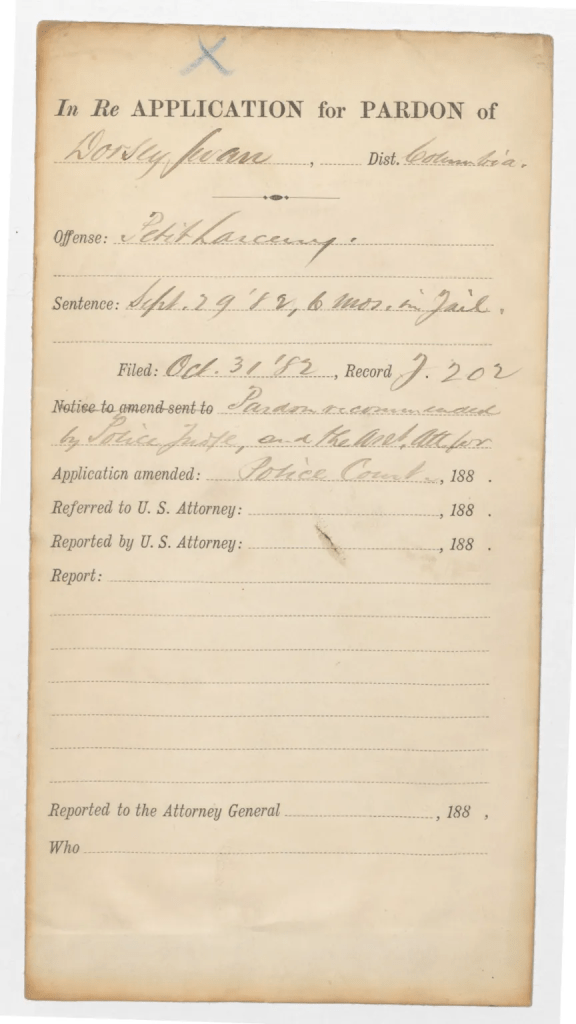 In Re APPLICATION for PARDON of
Dorsey, , Dist. Columbia.
Offense: Petit Larceny.
Sentence: Sept. 29 '82, 6 mos. in Jail.
Filed: Oct. 31 '82, Record J. 202
Notice to amend sent to Pardon recommended
by Police Judge, and the Asst. Att. for
Application amended: Police Court, 188 .
Referred to U. S. Attorney: , 188 .
Reported by U. S. Attorney: , 188 .
Report:
Reported to the Attorney General , 188 ,
Who